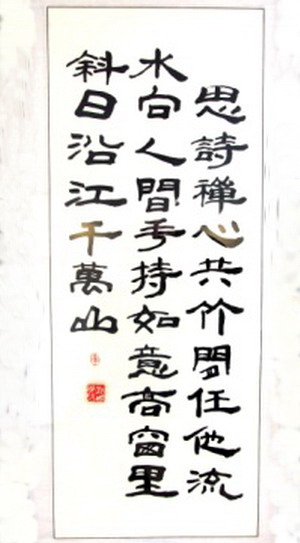 思詩禪心共竹閒任他流
水向人間手持如意高窗里
斜日沿江千萬山